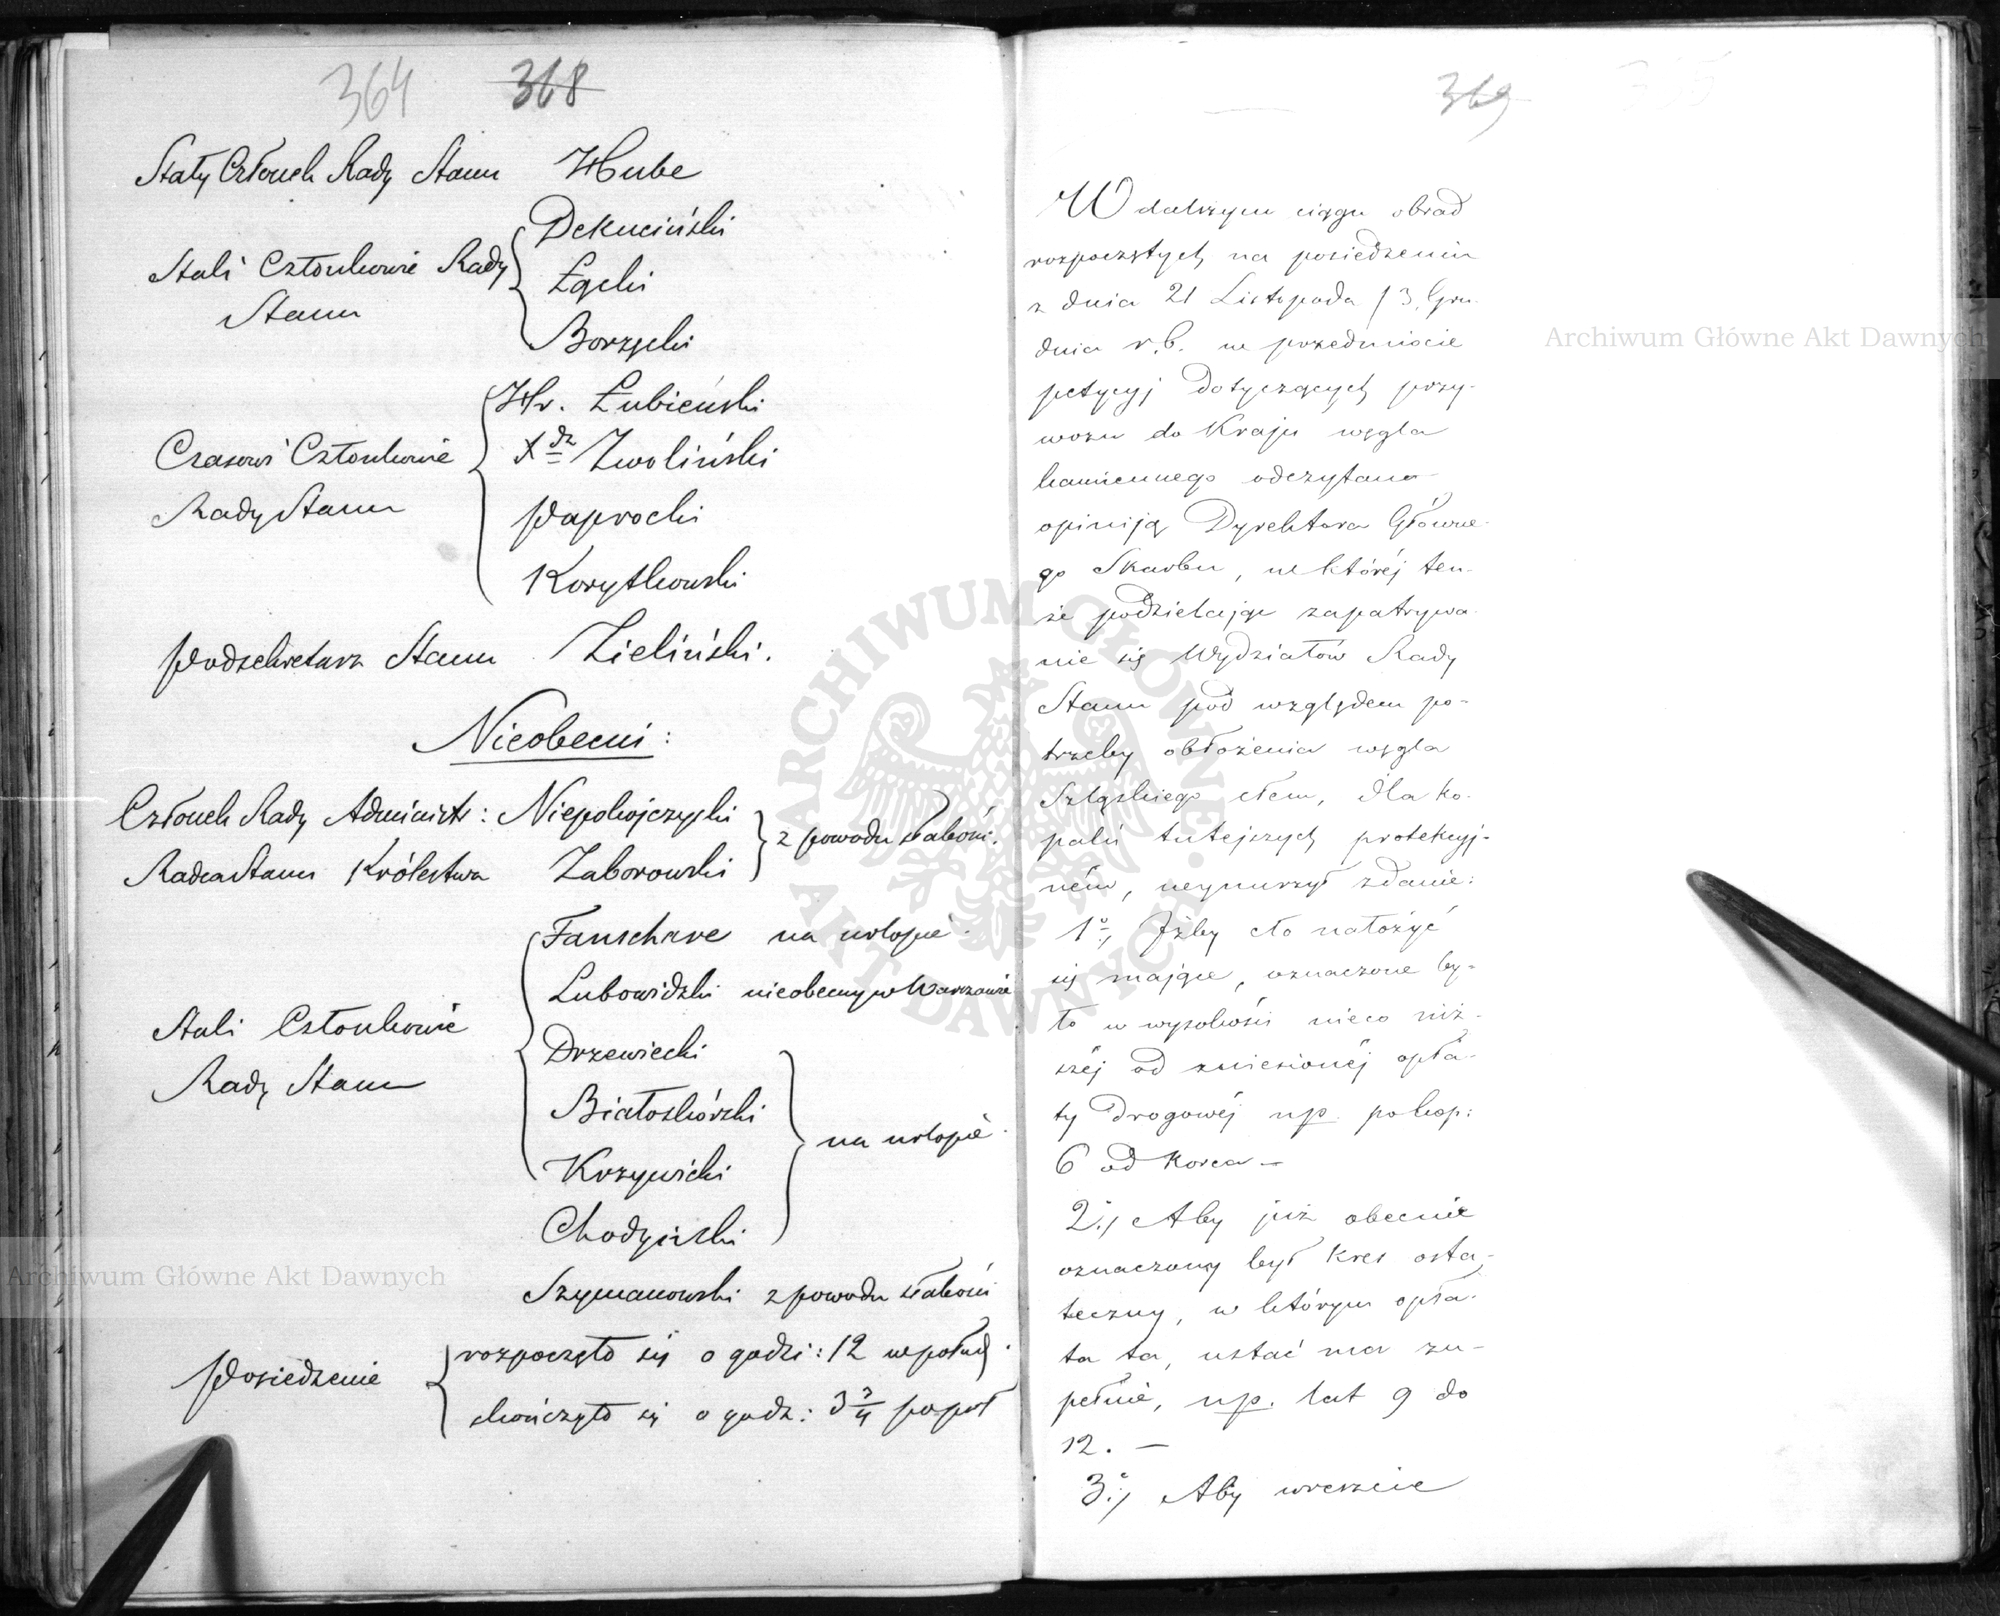 364 368
Stały Członek Rady Stanu Hube
Stali Członkowie Rady
Stanu
Dekuciński
Łącki
Borzęcki
Czasowi Członkowie
Rady Stanu
Hr. Łubieński
Xdz Zwoliński
Paprocki
Korytkowski
Podsekretarz Stanu Zieliński.
Nieobecni:
Członek Rady Administr: Niepokojczycki
Radca Stanu Królestwa Zaborowski
z powodu słabości.
Stali Członkowie
Rady Stanu
Fanschave na urlopie.
Lubowidzki nieobecny w Warszawie
Drzewiecki
Białoskórski
Krzywicki
Chodyński
na urlopie.
Szymanowski z powodu słabości
Posiedzenie
rozpoczęto się o godzi: 12 w połud.
skończyło się o godz: 3 3/4 popoł
369 365
W dalszym ciągu obrad
rozpoczętych na posiedzeniu
z dnia 21 Listopada /3 Gru-
dnia r.b. w przedmiocie
petycyj dotyczących przy-
wozu do Kraju węgla
kamiennego odczytano
opiniją Dyrektora Główne-
go Skarbu, w której ten-
że podzielając zapatrywa-
nie się Wydziałów Rady
Stanu pod względem po-
trzeby obłożenia węgla
Szląskiego cłem, dla ko-
palń tutejszych protekcyj-
ném, wynurzył zdanie:
1o, Iżby cło nałożyć
się mające, oznaczone by-
ło w wysokości nieco niż-
széj od zniesionéj opła-
ty drogowéj np. po kop:
6 od korca —
2o, Aby już obecnie
oznaczony był kres osta-
teczny, w którym opła-
ta ta, ustać ma zu-
pełnie, np. lat 9 do
12. —
3o, Aby wreszcie
Archiwum Główne Akt Dawnych
Archiwum Główne Akt Dawnych
ARCHIWUM GŁÓWNE AKT DAWNYCH